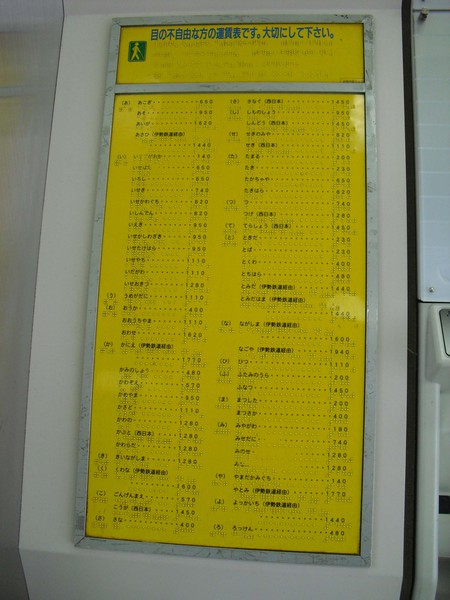 目の不自由な方の運賃表です。大切にして下さい。
(あ) あこぎ 650
あそ 950
あいが 1620
あさひ (伊勢鉄道経由)
1440
(い) 140
いそばた 950
いちし 650
いせき 740
いせかわぐち 820
いしんでん 820
いえき 950
いせかしわざき 950
いせたけはら 950
いせやち 1110
いだがわ 1110
いせおきつ 1280
(う) うめがだに 1110
(お) おうか 400
おおうちやま 1110
おわせ 1620
(か) かにえ (伊勢鉄道経由)
1770
かみのしょう 480
かわぞえ 570
かわやま 850
かさど 1110
かわの 1280
かぶと (西日本) 1280
かわらだ 1280
(き) きいながしま 1280
(く) くわな (伊勢鉄道経由)
1600
(こ) ごんげんまえ 570
こうが (西日本) 1450
(さ) さな 400
(さ) さなぐ (西日本) 1450
(し) しものしょう
しんどう (西日本)
(せ) せきのみや
せき (西日本)
(た) たまる
たき 230
たかちゃや 650
たきはら 820
(つ) つ 740
つげ (西日本) 1280
(て) てらしょう (西日本) 1450
(と) ときだ 230
とば 230
とくわ 400
とちはら 480
とみだ (伊勢鉄道経由) 1440
とみだはま (伊勢鉄道経由)
1440
(な) ながしま (伊勢鉄道経由)
1600
なごや (伊勢鉄道経由) 1940
(ひ) ひつ 1110
(ふ) ふたみのうら 200
ふなつ 1450
(ま) まつした 200
まつさか 400
(み) みやがわ 160
みせだに 740
みのせ 1280
みな 1280
(や) やまだかみぐち 140
やとみ (伊勢鉄道経由) 1770
(よ) よっかいち (伊勢鉄道経由)
1440
(ろ) ろっけん 480